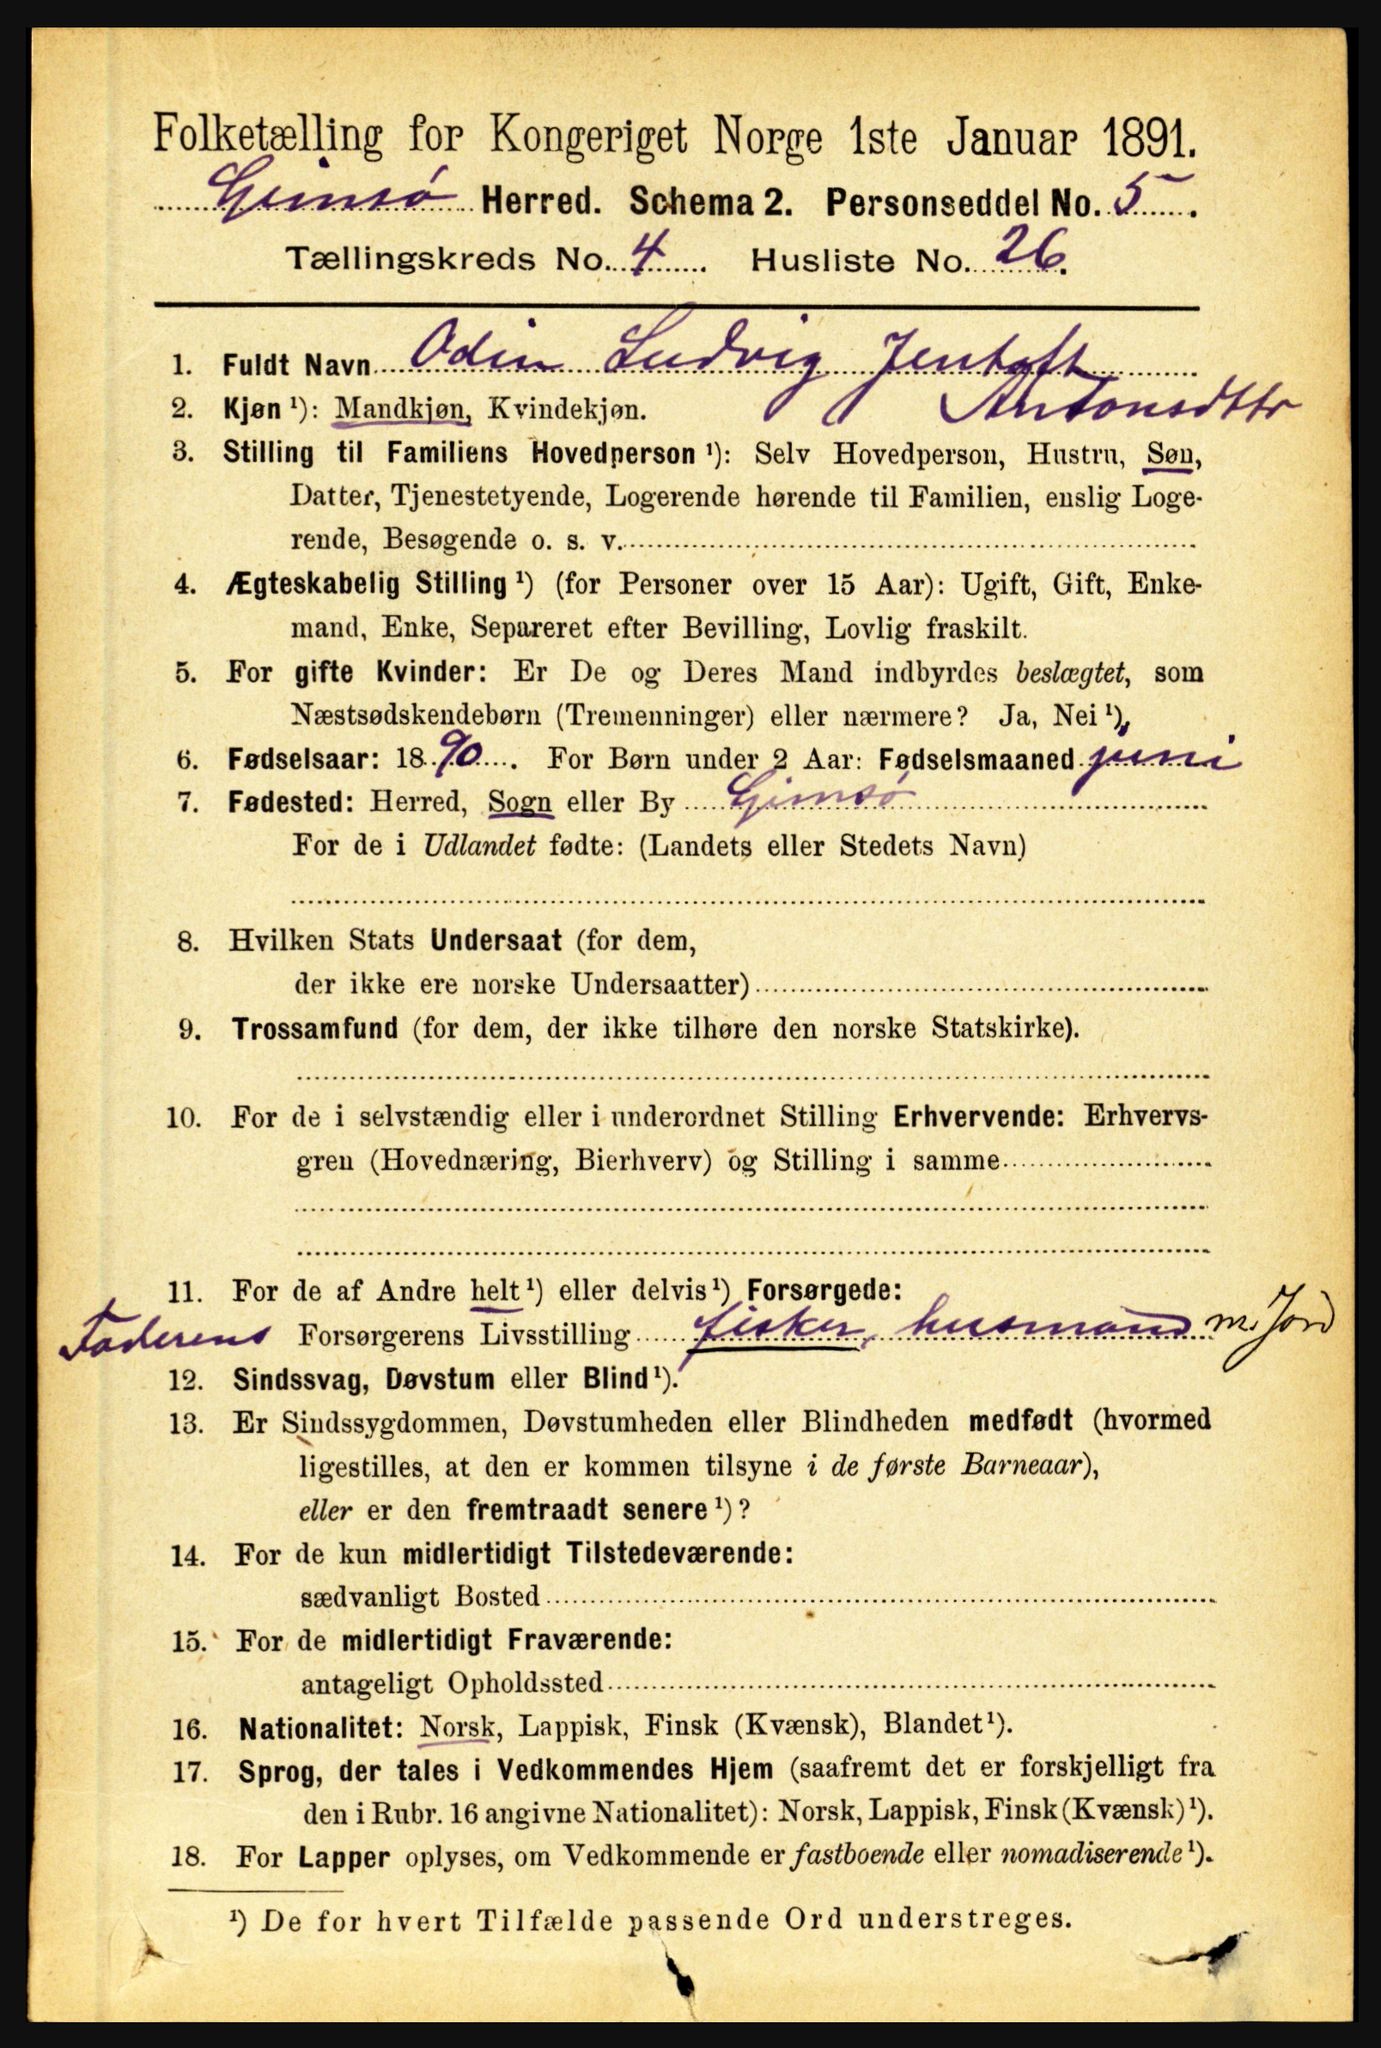 Folketælling for Kongeriget Norge 1ste Januar 1891.
Gimsø Herred. Schema 2. Personseddel No. 5.
Tællingskreds No. 4 Husliste No. 26.
1. Fuldt Navn Odin Ludvig Jentoft
Antonsdttr
2. Kjøn ¹): Mandkjøn, Kvindekjøn.
3. Stilling til Familiens Hovedperson ¹): Selv Hovedperson, Hustru, Søn,
Datter, Tjenestetyende, Logerende hørende til Familien, enslig Loge-
rende, Besøgende o. s. v.
4. Ægteskabelig Stilling ¹) (for Personer over 15 Aar): Ugift, Gift, Enke-
mand, Enke, Separeret efter Bevilling, Lovlig fraskilt.
5. For gifte Kvinder: Er De og Deres Mand indbyrdes beslægtet, som
Næstsødskendebørn (Tremenninger) eller nærmere? Ja, Nei ¹).
6. Fødselsaar: 1890. For Børn under 2 Aar: Fødselsmaaned juni
7. Fødested: Herred, Sogn eller By Gimsø
For de i Udlandet fødte: (Landets eller Stedets Navn)
8. Hvilken Stats Undersaat (for dem,
der ikke ere norske Undersaatter)
9. Trossamfund (for dem, der ikke tilhøre den norske Statskirke).
10. For de i selvstændig eller i underordnet Stilling Erhvervende: Erhvervs-
gren (Hovednæring, Bierhverv) og Stilling i samme
11. For de af Andre helt ¹) eller delvis ¹) Forsørgede:
Faderens Forsørgerens Livsstilling fisker, husmand m. Jord
12. Sindssvag, Døvstum eller Blind ¹).
13. Er Sindssygdommen, Døvstumheden eller Blindheden medfødt (hvormed
ligestilles, at den er kommen tilsyne i de første Barneaar),
eller er den fremtraadt senere ¹)?
14. For de kun midlertidigt Tilstedeværende:
sædvanligt Bosted
15. For de midlertidigt Fraværende:
antageligt Opholdssted
16. Nationalitet: Norsk, Lappisk, Finsk (Kvænsk), Blandet ¹).
17. Sprog, der tales i Vedkommendes Hjem (saafremt det er forskjelligt fra
den i Rubr. 16 angivne Nationalitet): Norsk, Lappisk, Finsk (Kvænsk) ¹).
18. For Lapper oplyses, om Vedkommende er fastboende eller nomadiserende ¹).
¹) De for hvert Tilfælde passende Ord understreges.